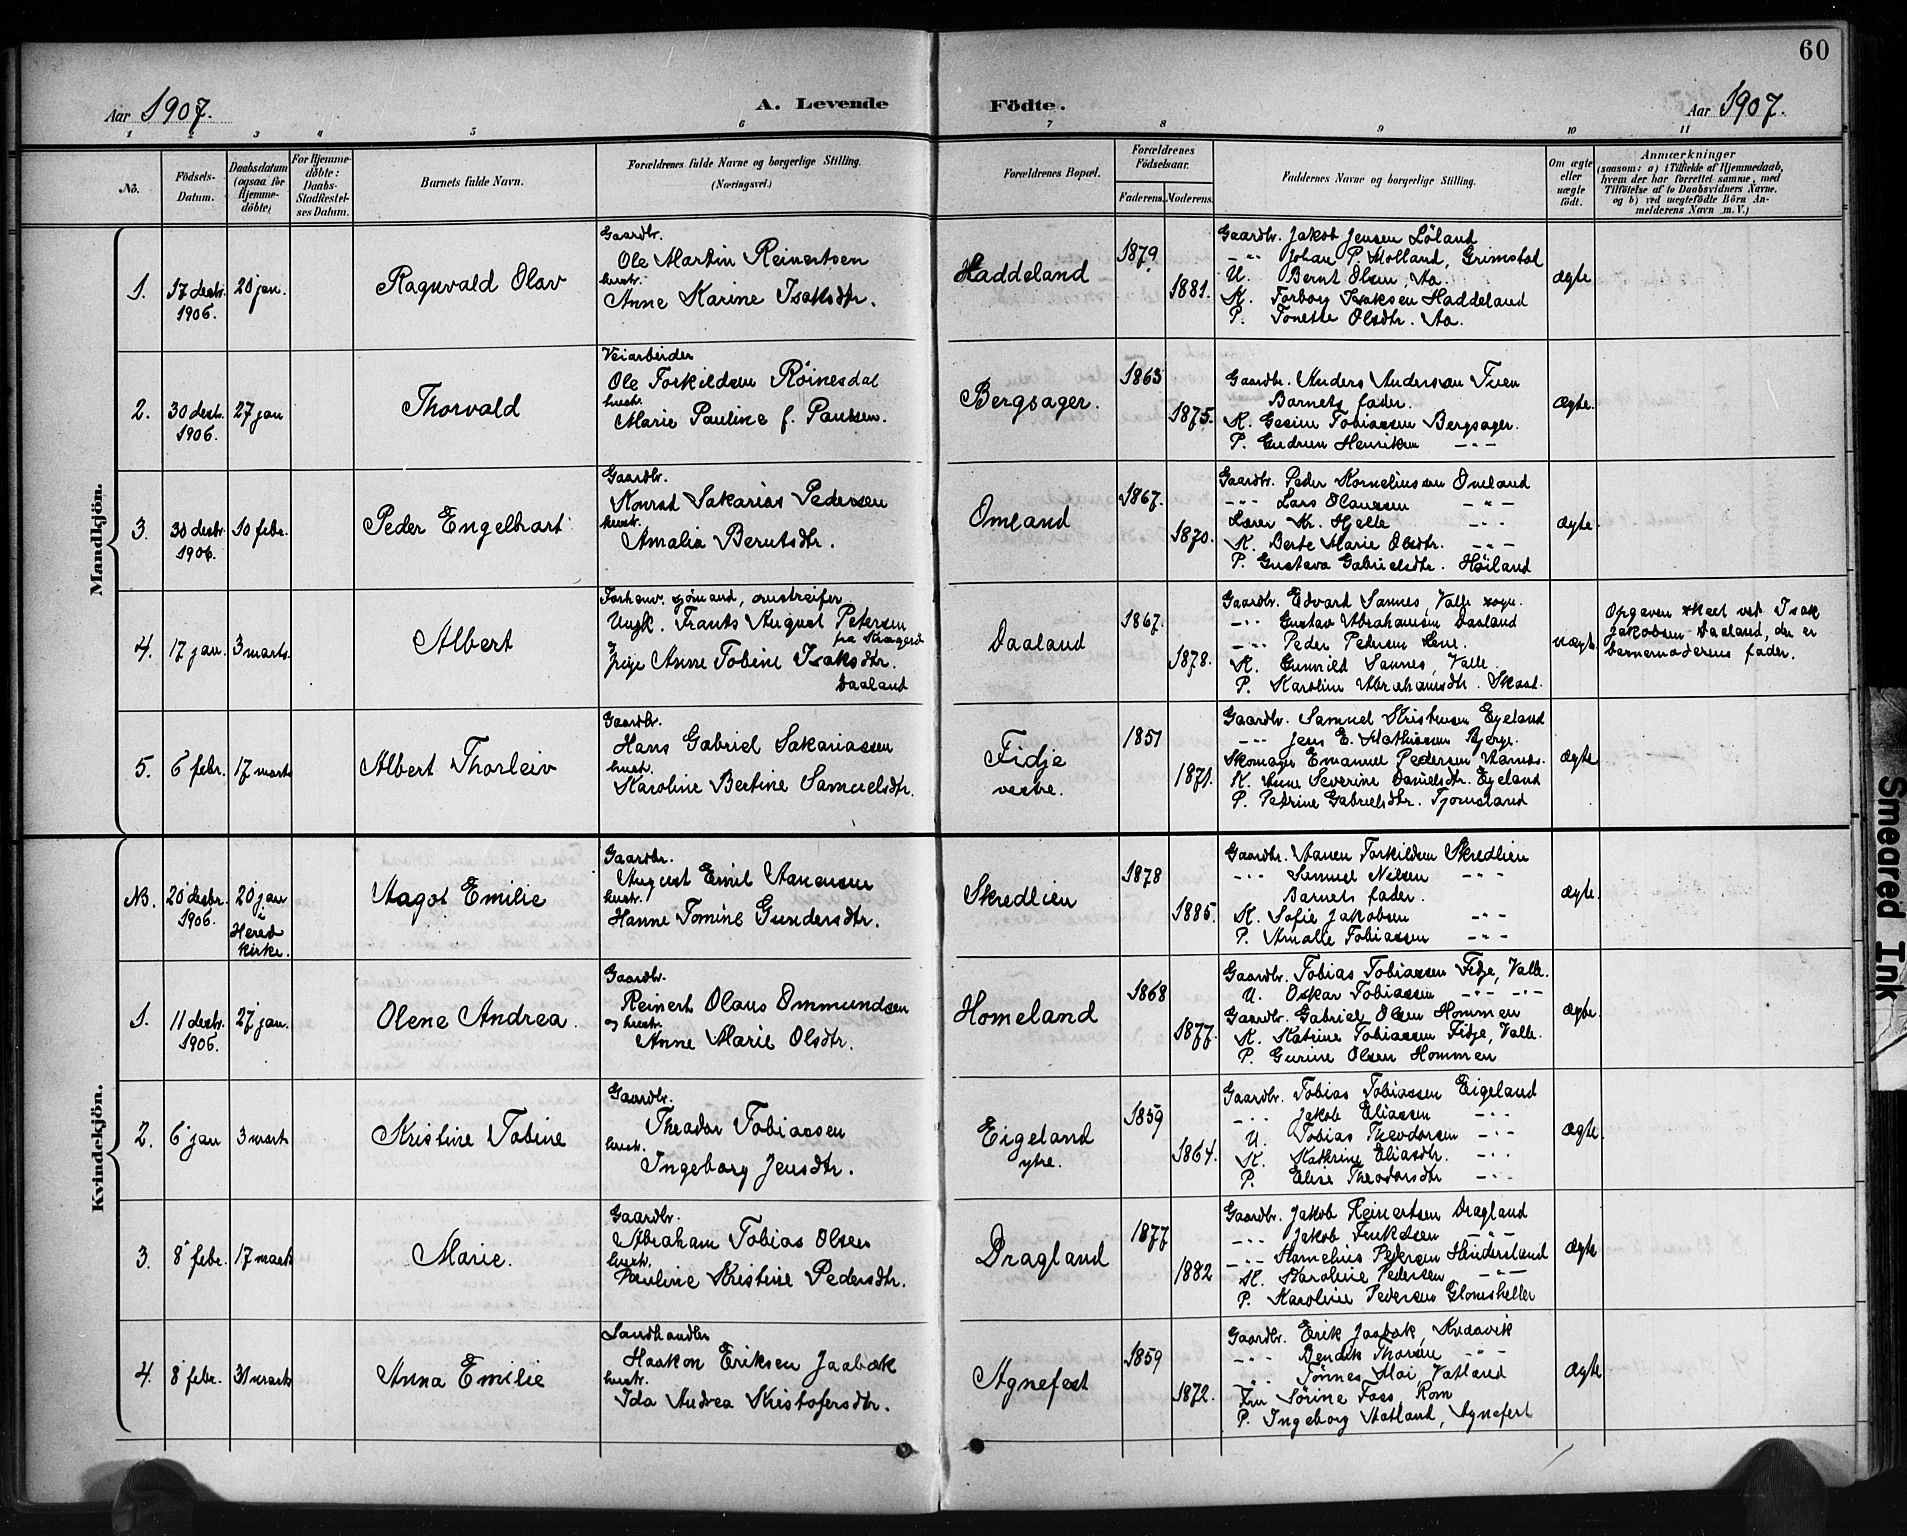 60
Aar 1907.
A. Levende
Födte.
Aar 1907.
1 2 3 4 5 6 7 8 9 10 11
No.
Födsels-
Datum.
Daabsdatum
(ogsaa for
Hjemme-
döbte)
For Hjemme-
döbte:
Daabs-
Stadfæstel-
ses Datum.
Barnets fulde Navn.
Forældrenes fulde Navne og borgerlige Stilling.
(Næringsvei.)
Forældrenes Bopæl.
Forældrenes
Födselsaar.
Faderens. Moderens.
Faddernes Navne og borgerlige Stilling.
Om ægte
eller
uægte
födt.
Anmærkninger
(saasom: a) i Tilfælde af Hjemmedaab,
hvem der har forrettet samme, med
Tilföielse af to Daabsvidners Navne.
og b) ved uægtefödte Börn An-
melderens Navn m. V.)
Mandkjön.
1.
17 desbr.
1906.
20 jan.
Ragnvald Olav
Gaardbr.
Ole Martin Reinertsen
hustr.
Anne Karine Isaksdtr.
Haddeland
1879
1881.
Gaardbr. Jakob Jensen Löland
-"- Johan P. Molland, Grimstad
U. Bernt Olsen, Aa.
K. Torborg Isaksen Haddeland
P. Tonette Olsdtr. Aa.
ægte
2.
30 desbr.
1906.
27 jan
Thorvald
Veiarbeider
Ole Torkildsen Röinesdal
hustr.
Marie Pauline f. Paulsen.
Bergsager.
1863
1875.
Gaardbr. Anders Andersen Tveen
Barnets fader.
K. Gesine Tobiassen Bergsager.
P. Gudrun Henriksen -"-
ægte.
3.
30 desbr
1906.
10 febr.
Peder Engelhart
Gaardbr.
Konrad Sakarias Pedersen
hustr.
Amalia Berntsdtr.
Omland
1867.
1870.
Gaardbr. Peder Korneliussen Omland
-"- Lars Olaussen -"-
Lærer Kr. Hjelle -"-
K. Berte Marie Olsdtr. -"-
P. Gustava Gabrielsdtr. Höiland
ægte.
4.
17 jan.
3 marts.
Albert
Forhenv. sjömand, omstreifer
Ungk. Frants August Petersen
fra Kragerö
og
Pige Anne Tobine Isaksdtr.
Daaland
Daaland
1867.
1878.
Gaardbr. Edvard Sannes, Valle sogn.
-"- Gustav Abrahamsen Daaland
-"- Peder Pedersen Lene.
K. Gunnild Sannes, Valle.
P. Karoline Abrahamsdtr. Skaat.
uægte
Opgaven skeet ved Isak
Jakobsen Daaland, der er
barnemoderens fader.
5.
6 febr.
17 marts
Albert Thorleiv
Gaardbr.
Hans Gabriel Sakariassen
hustr.
Karoline Bertine Samuelsdtr.
Fidje
vestre.
1851
1871.
Gaardbr. Samuel Kristensen Egeland
-"- Jens E. Mathiassen Bjerge.
Skomager Emanuel Pedersen
K. Anne Severine Danielsdtr. Egeland
P. Petrine Gabrielsdtr. Tjomsland
ægte
Kvindekjön.
NB.
20 desbr.
1906.
20 jan
i
Hered
kirke.
Aagot Emilie
Gaardbr.
August Emil Aanensen
hustr.
Hanne Tomine Gundersdtr.
Skredlien
1878
1885.
Gaardbr. Aanen Torkildsen Skredlien
-"- Samuel Nilsen -"-
Barnets fader.
K. Sofie Jakobsen -"-
P. Amalie Tobiassen -"-
ægte.
1.
11 desbr.
1906.
27 jan.
Olene Andrea.
Gaardbr.
Reinert Olaus Ommundsen
og hustr.
Anne Marie Olsdtr.
Homeland
1868
1877.
Gaardbr. Tobias Tobiassen Fidje, Valle.
U. Oskar Tobiassen -"- -"-
Gaardbr. Gabriel Olsen Hommen
K. Katrine Tobiassen Fidje, Valle.
P. Gurine Olsen Hommen
ægte.
2.
6 jan
3 marts
Kristine Tobine
Gaardbr.
Theodor Tobiassen
hustr.
Ingeborg Jensdtr.
Eigeland
ytre.
1859
1864.
Gaardbr. Tobias Tobiassen Eigeland
-"- Jakob Eliassen -"-
U. Tobias Theodorsen -"-
K. Kathrine Eliasdtr. -"-
P. Elise Theodorsdtr -"-
ægte.
3.
8 febr.
17 marts
Marie.
Gaardbr.
Abraham Tobias Olsen
hustr.
Pauline Kristine Pedersdtr.
Dragland
1877
1882
Gaardbr. Jakob Reinertsen Dragland
-"- Jakob -"-
-"- Kornelius Pedersen Hindersland
K. Karoline Pedersen -"-
P. Karoline Pedersen Glomsheller
ægte
4.
8 febr.
31 marts
Anna Emilie
Landhandler
Haakon Eriksen Jaabæk
hustr.
Ida Andrea Kristofersdtr.
Agnefest
1859
1872.
Gaardbr. Erik Jaabæk, Kvdavik
-"- Bendik Thorsen -"-
-"- Tönnes Moi, Vatland
Fru Sörine Foss, Rom
P. Ingeborg Vatland, Agnefest
ægte
Smeared Ink